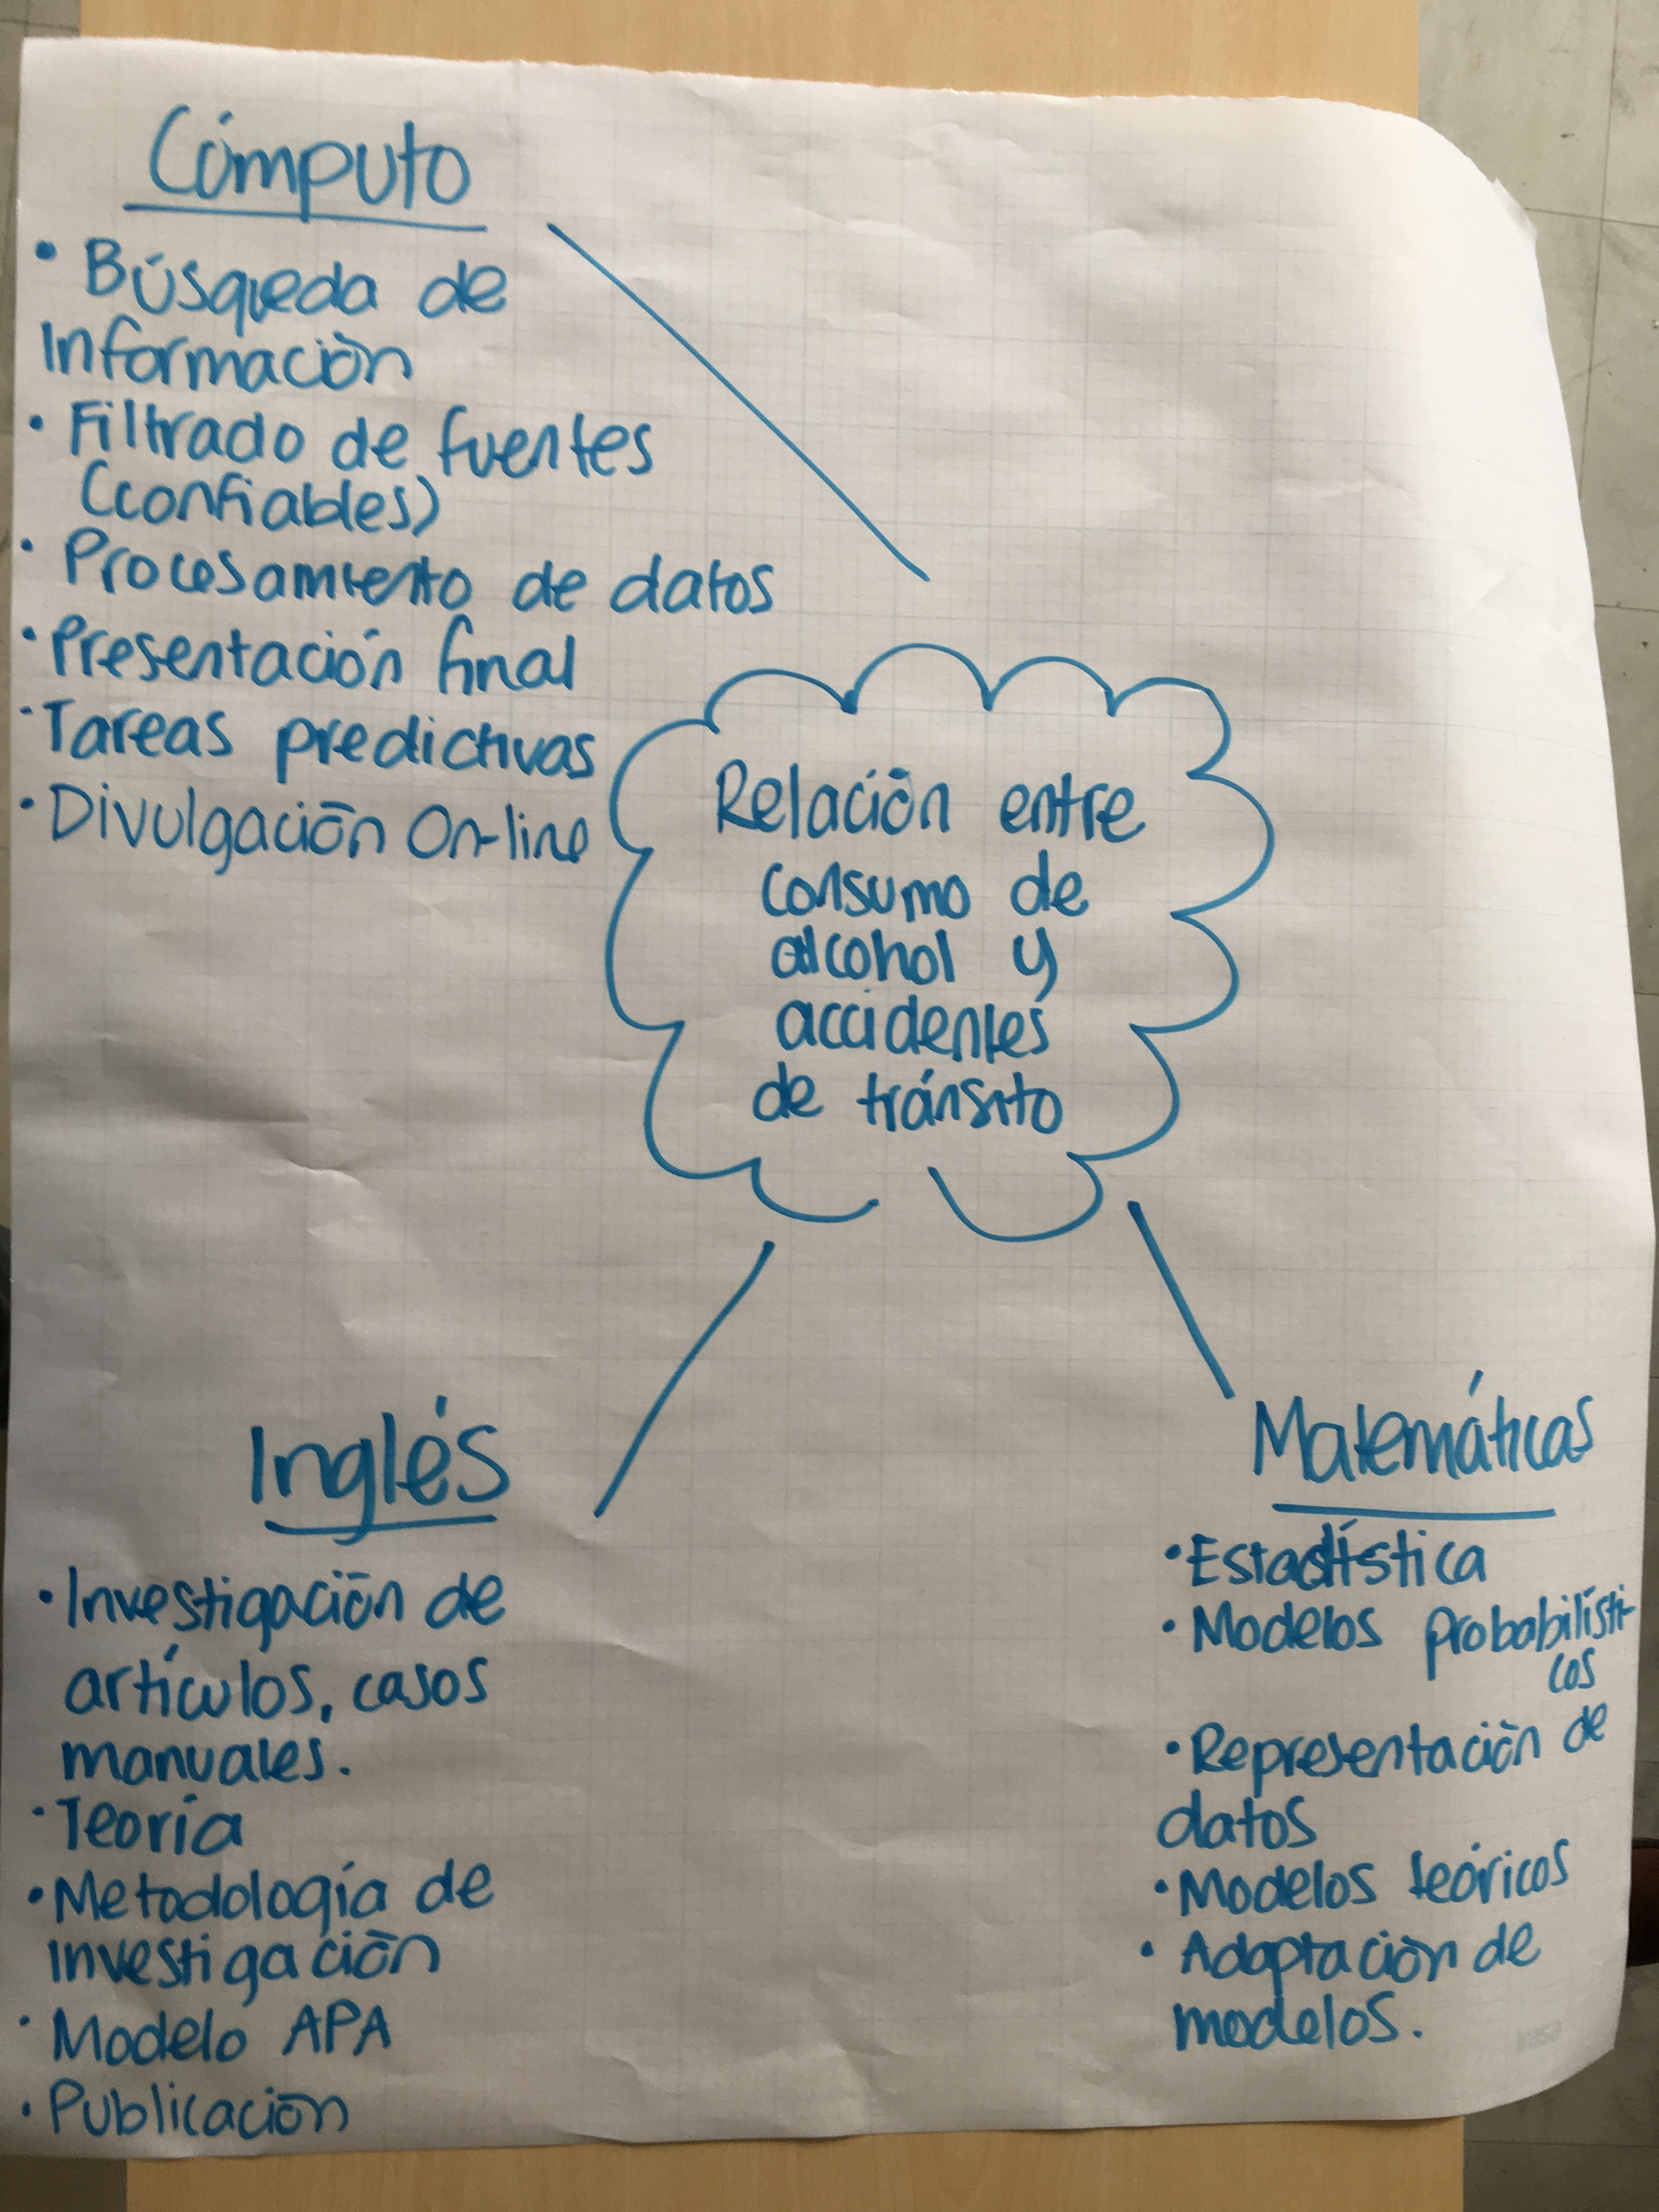 Cómputo
• Búsqueda de
Información
• Filtrado de fuentes
(confiables)
• Procesamiento de datos
• Presentación final
• Tareas predictivas
• Divulgación On-line
Relación entre
consumo de
alcohol y
accidentes
de tránsito
Inglés
• Investigación de
artículos, casos
manuales.
• Teoría
• Metodología de
investigación
• Modelo APA
• Publicación
Matemáticas
• Estadística
• Modelos probabilísti-
cos
• Representación de
datos
• Modelos teóricos
• Adaptación de
modelos.